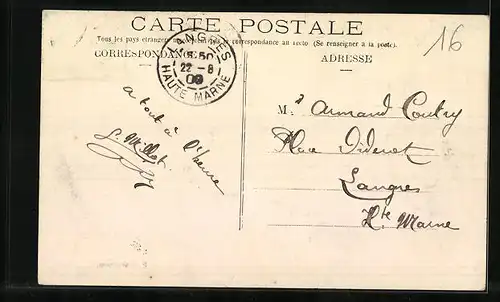 CARTE POSTALE
Tous les pays étrangers la correspondance au recto (Se renseigner à la poste).
CORRESPONDANCE
ADRESSE
LANGRES
22 - 8
09
HAUTE MARNE
16
a tout à l'heure
L. Millot
Mr Armand Coutry
Place Diderot
Langres
Hte Marne